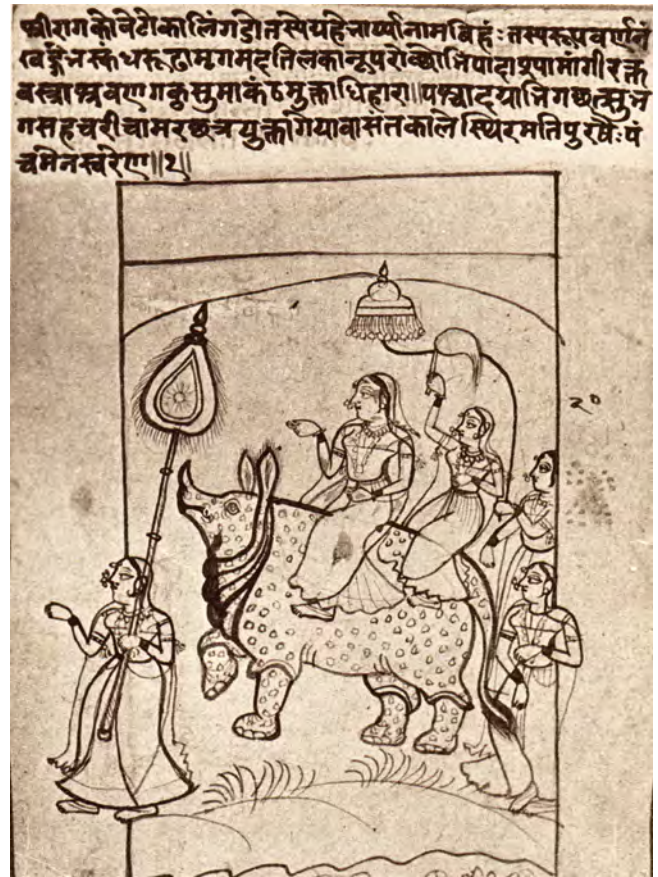 श्रीरागको वेटो कालिंगडो तस्येयहे नार्य्या नाम विहं: तस्यरूपवर्णनं
स्कंधरूढा मृगमदतिलका नूपरो पादा श्यामांगी रक्त
वस्त्रा श्रवणगकुसुमा कंठमुक्ताधिहारा॥ पश्चाद्याभिगछत्सुभ
गसहचरीचामरछत्रयुक्ता गेया वासंतकाले स्थिरमतिपुरषै:पं
चमेनस्वरेण॥१॥
२०